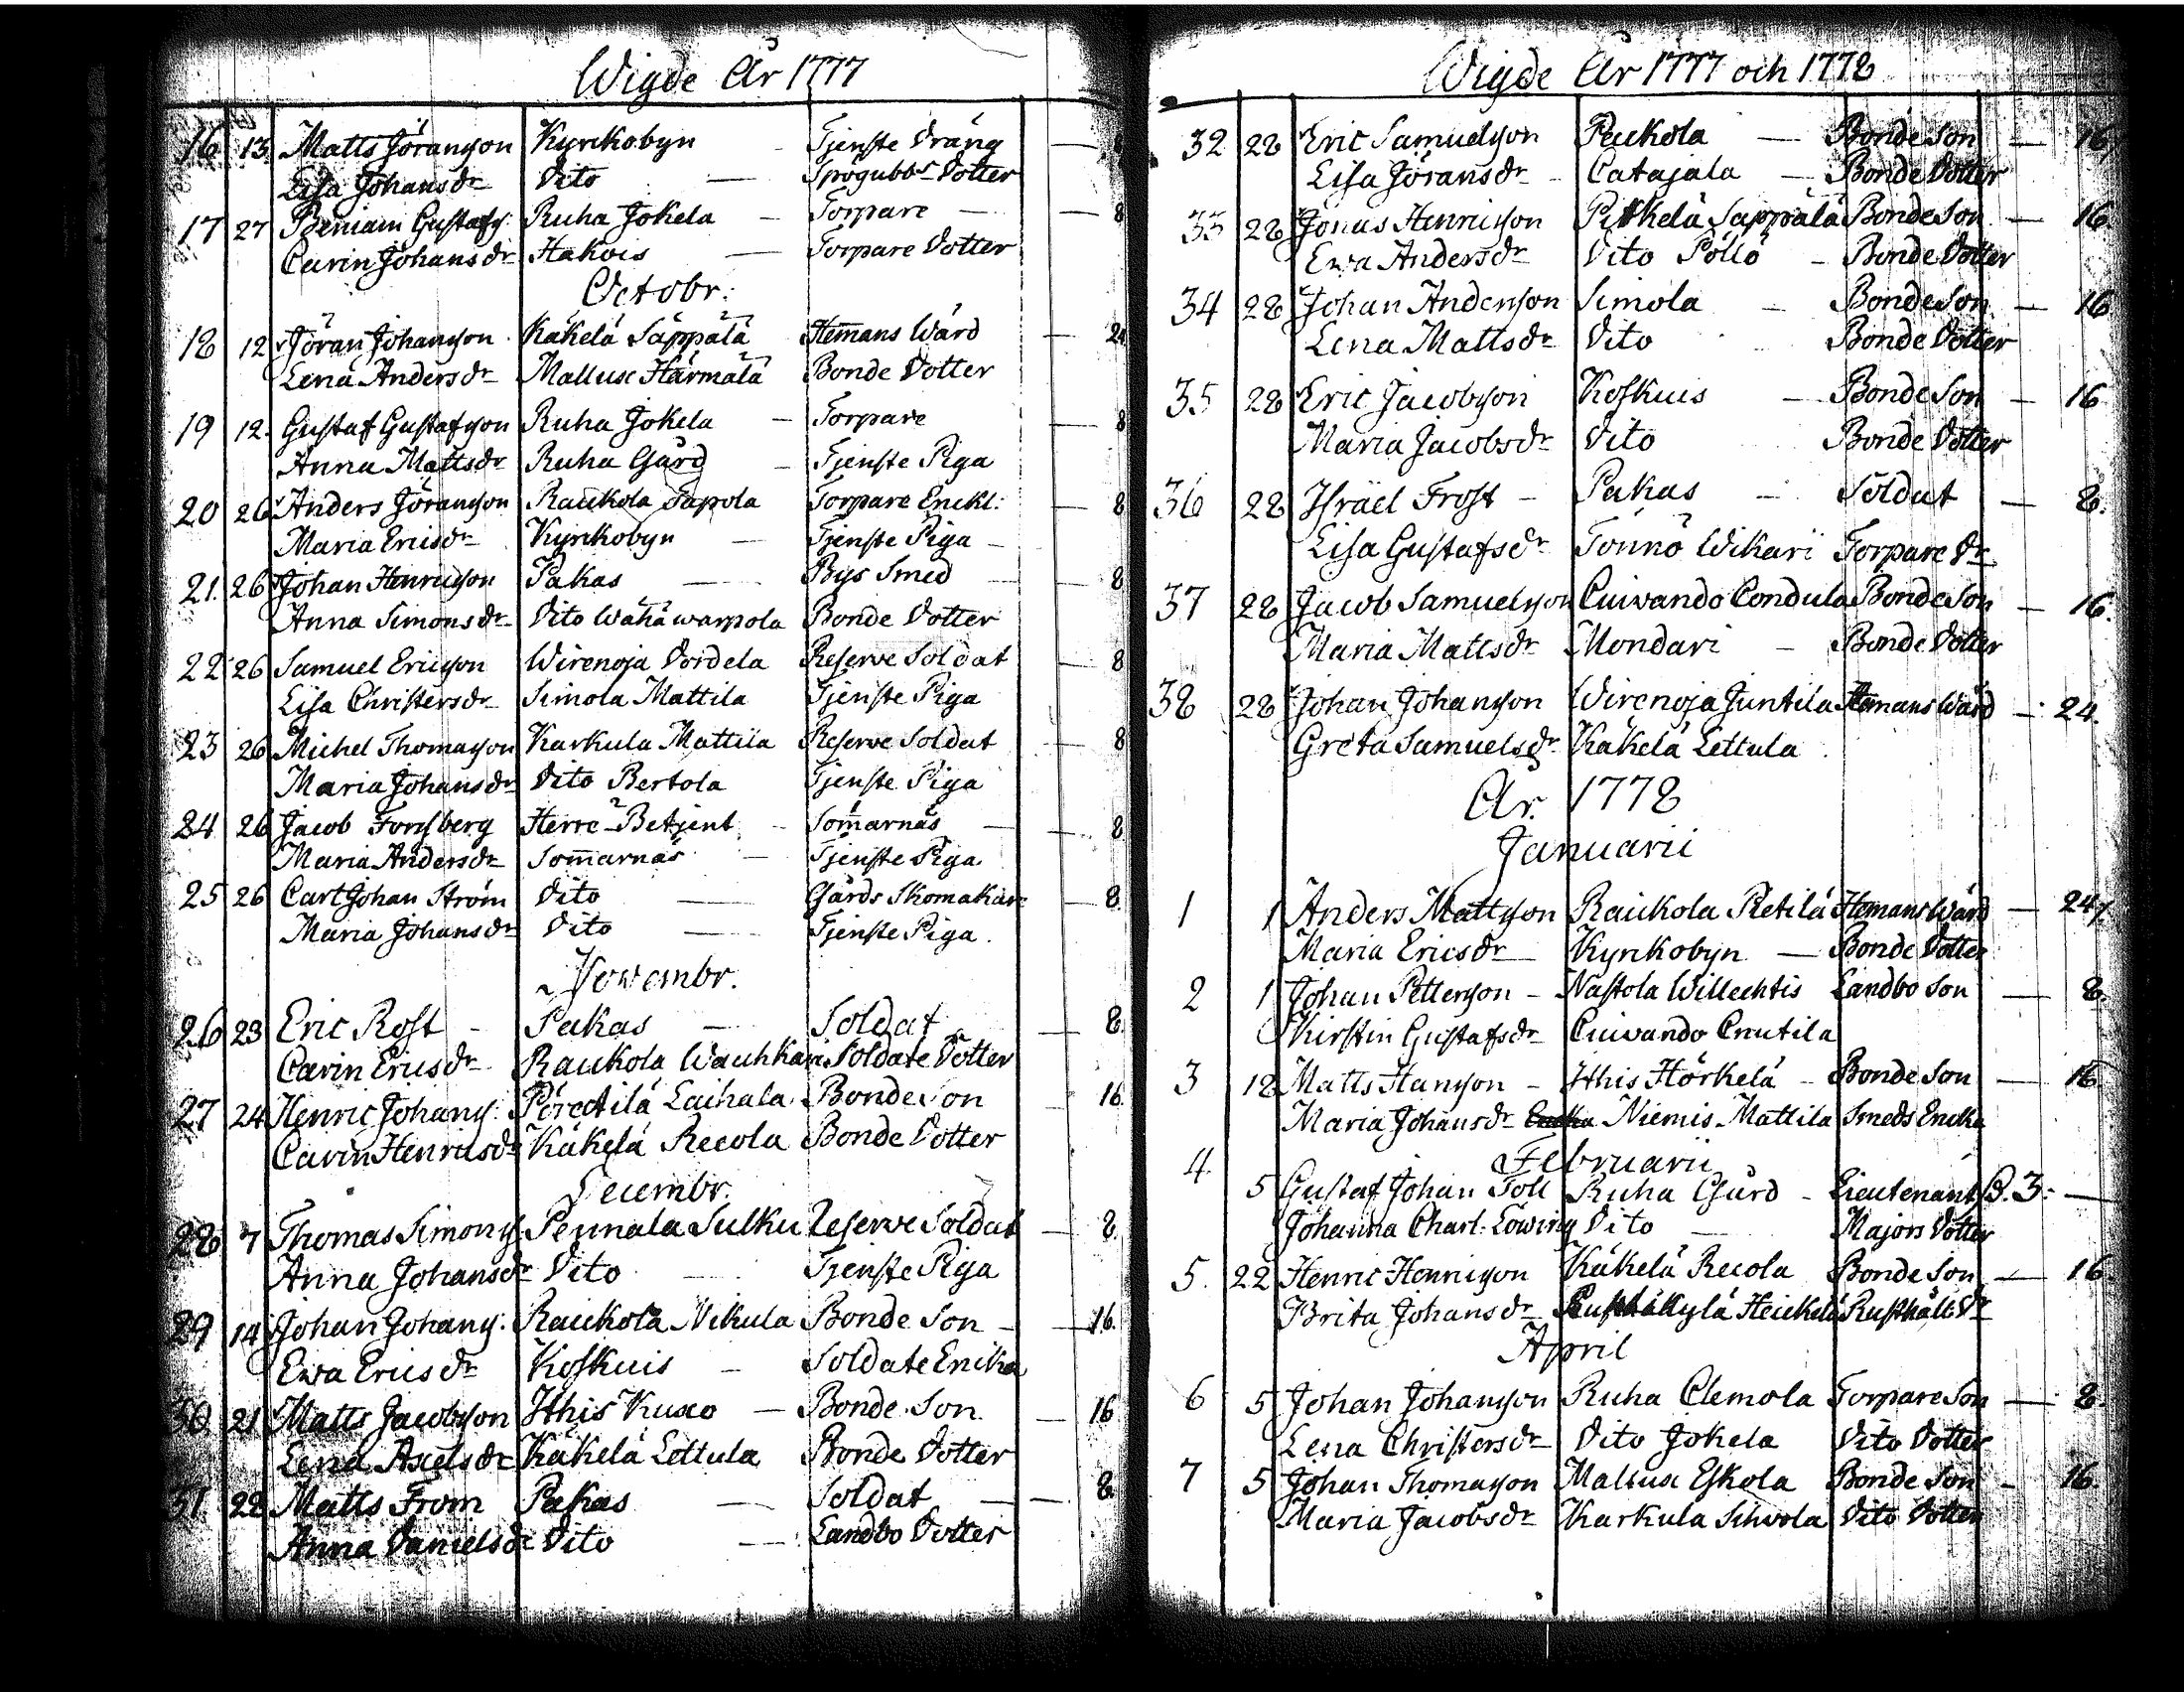 Wigde År 1777
16 13 Matts Jöransson Kyrkobyn Tjenste Dräng 8
Lisa Johansdr Dito — Spögubbs Dotter
17 27 Beniam Gustafss: Ruha Jokela — Torpare — 8
Carin Johansdr Hakois — Torpare Dotter
Octobr:
18 12 Jöran Johansson Käkelä Säppälä Hemans Wård — 24
Lena Andersdr Mallusc Härmälä Bonde Dotter
19 12. Gustaf Gustafsson Ruha Jokela — Torpare — 8
Anna Mattsdr Ruha Gård — Tjenste Piga
20 26 Anders Jöransson Raukola Tapola Torpare Enckl: — 8
Maria Ericsdr Kyrkobyn — Tjenste Piga
21. 26 Johan Henricsson Pakas — Bys Smed — 8
Anna Simonsdr Dito Wähäwarpola Bonde Dotter
22 26 Samuel Ericsson Wirenoja Dordela Reserve Soldat — 8
Lisa Christersdr Simola Mattila Tjenste Piga
23 26 Michel Thomasson Karkula Mattila Reserve Soldat — 8
Maria Johansdr Dito Bertola Tjenste Piga
24 26 Jacob Forssberg Herre-Betjent — Somarnäs — 8
Maria Andersdr Somarnäs — Tjenste Piga
25 26 Carl Johan Ström Dito — Gårds Skomakare — 8
Maria Johansdr Dito — Tjenste Piga.
Nowembr.
26 23 Eric Rost — Pakas — Soldat — 8.
Carin Ericsdr Raukola Wauhkari Soldate Dotter
27 24 Henric Johanss: Pöretilä Laihala Bonde Son — 16.
Carin Henricsdr Käkelä Recola Bonde Dotter
Decembr.
28 7 Thomas Simonss: Pennala Sulku Reserve Soldat — 8.
Anna Johansdr Dito — Tjenste Piga
29 14 Johan Johanss: Raukola Nikula Bonde Son — 16.
Ewa Ericsdr Koskuis — Soldate Encka
30 21 Matts Jacobsson Ithis Kuxo — Bonde Son — 16
Lena Axelsdr Käkelä Lettula Bonde Dotter
31. 22 Matts From Pakas — Soldat — 8
Anna Danielsdr Dito — Landbo Dotter
Wigde År 1777 och 1778
32 28 Eric Samuelsson Paukola — Bonde Son — 16
Lisa Jöransdr — Catajala — Bonde Dotter
33 28 Jonas Henricsson Pitkelä Sappälä Bonde Son — 16.
Ewa Andersdr Dito Pöllö — Bonde Dotter
34 28 Johan Andersson Simola — Bonde Son — 16
Lena Mattsdr Dito Bonde Dotter
35 28 Eric Jacobsson Koskuis — Bonde Son — 16
Maria Jacobsdr Dito Bonde Dotter
36 28 Israel Frost — Pakas — Soldat — 8.
Lisa Gustafsdr Tönnö Wikari Torpare Dr
37 28 Jacob Samuelsson Cuivando Condula Bonde Son — 16.
Maria Mattsdr Mondari — Bonde Dotter
38 28 Johan Johansson Wirenoja Juntila Hemans Wård — 24.
Greta Samuelsdr Käkelä Lettula
År. 1778
Januarii
1 1 Anders Mattsson Raukola Pietilä Hemans Wård — 24
Maria Ericsdr — Kyrkobyn — Bonde Dotter
2 1 Johan Pettersson — Nastola Willechtis Landbo Son — 8.
Kirstin Gustafsdr Cuivando Cnutila
3 18 Matts Hansson — Ithis Hörkelä — Bonde Son — 16
Maria Johansdr Encka Niemis Mattila Smeds Encka
Februarii
4. 5 Gustaf Johan Toll Ruha Gård — Lieutenant 3. —
Johanna Charl: Löwing Dito — Majors Dotter
5. 22 Henric Henricsson Käkelä Recola Bonde Son — 16.
Brita Johansdr Heickelä Rusthåll: Dr
April
6 5 Johan Johansson Ruha Clemola Torpare Son — 8.
Lena Christersdr Dito Jokela Dito Dotter
7 5 Johan Thomasson Mallusc Eskola Bonde Son — 16.
Maria Jacobsdr Karkula Sihvola Dito Dotter